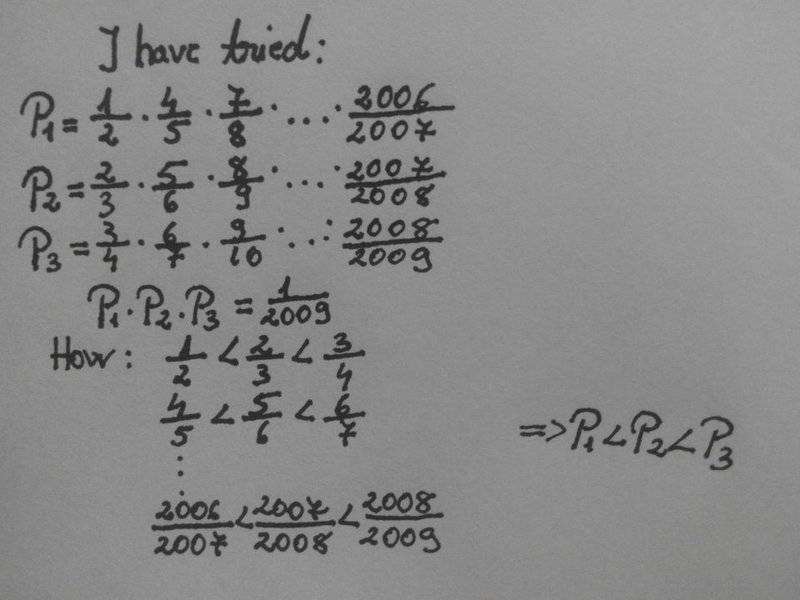 I have tried:
P₁ = 1/2 · 4/5 · 7/8 · ... · 2006/2007
P₂ = 2/3 · 5/6 · 8/9 · ... · 2007/2008
P₃ = 3/4 · 6/7 · 9/10 · ... · 2008/2009
P₁ · P₂ · P₃ = 1/2009
How: 1/2 < 2/3 < 3/4
4/5 < 5/6 < 6/7
⋮
=> P₁ < P₂ < P₃
2006/2007 < 2007/2008 < 2008/2009